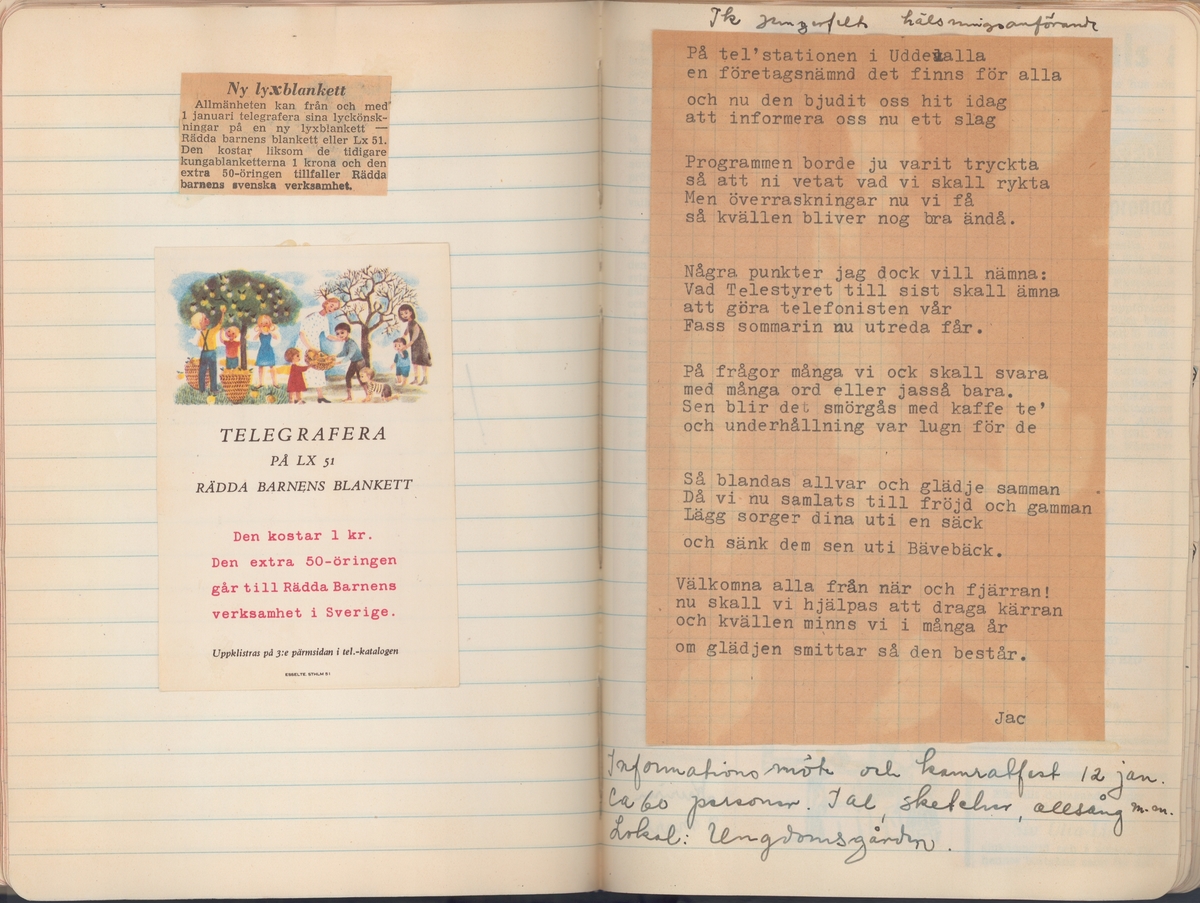 Ny lyxblankett
Allmänheten kan från och med
1 januari telegrafera sina lyckönsk-
ningar på en ny lyxblankett —
Rädda barnens blankett eller Lx 51.
Den kostar liksom de tidigare
kungablanketterna 1 krona och den
extra 50-öringen tillfaller Rädda
barnens svenska verksamhet.
TELEGRAFERA
PÅ LX 51
RÄDDA BARNENS BLANKETT
Den kostar 1 kr.
Den extra 50-öringen
går till Rädda Barnens
verksamhet i Sverige.
Uppklistras på 3:e pärmsidan i tel.-katalogen
ESSELTE, STHLM 51
hälsningsanförande
På tel'stationen i Uddevalla
en företagsnämnd det finns för alla
och nu den bjudit oss hit idag
att informera oss nu ett slag
Programmen borde ju varit tryckta
så att ni vetat vad vi skall rykta
Men överraskningar nu vi få
så kvällen bliver nog bra ändå.
Några punkter jag dock vill nämna:
Vad Telestyret till sist skall ämna
att göra telefonisten vår
Fass sommarin nu utreda får.
På frågor många vi ock skall svara
med många ord eller jasså bara.
Sen blir det smörgås med kaffe te'
och underhållning var lugn för de
Så blandas allvar och glädje samman
Då vi nu samlats till fröjd och gamman
Lägg sorger dina uti en säck
och sänk dem sen uti Bävebäck.
Välkomna alla från när och fjärran!
nu skall vi hjälpas att draga kärran
och kvällen minns vi i många år
om glädjen smittar så den består.
Jac
Informationsmöte och kamratfest 12 jan.
Ca 60 personer. Tal, sketcher, allsång m.m.
Lokal: Ungdomsgården.